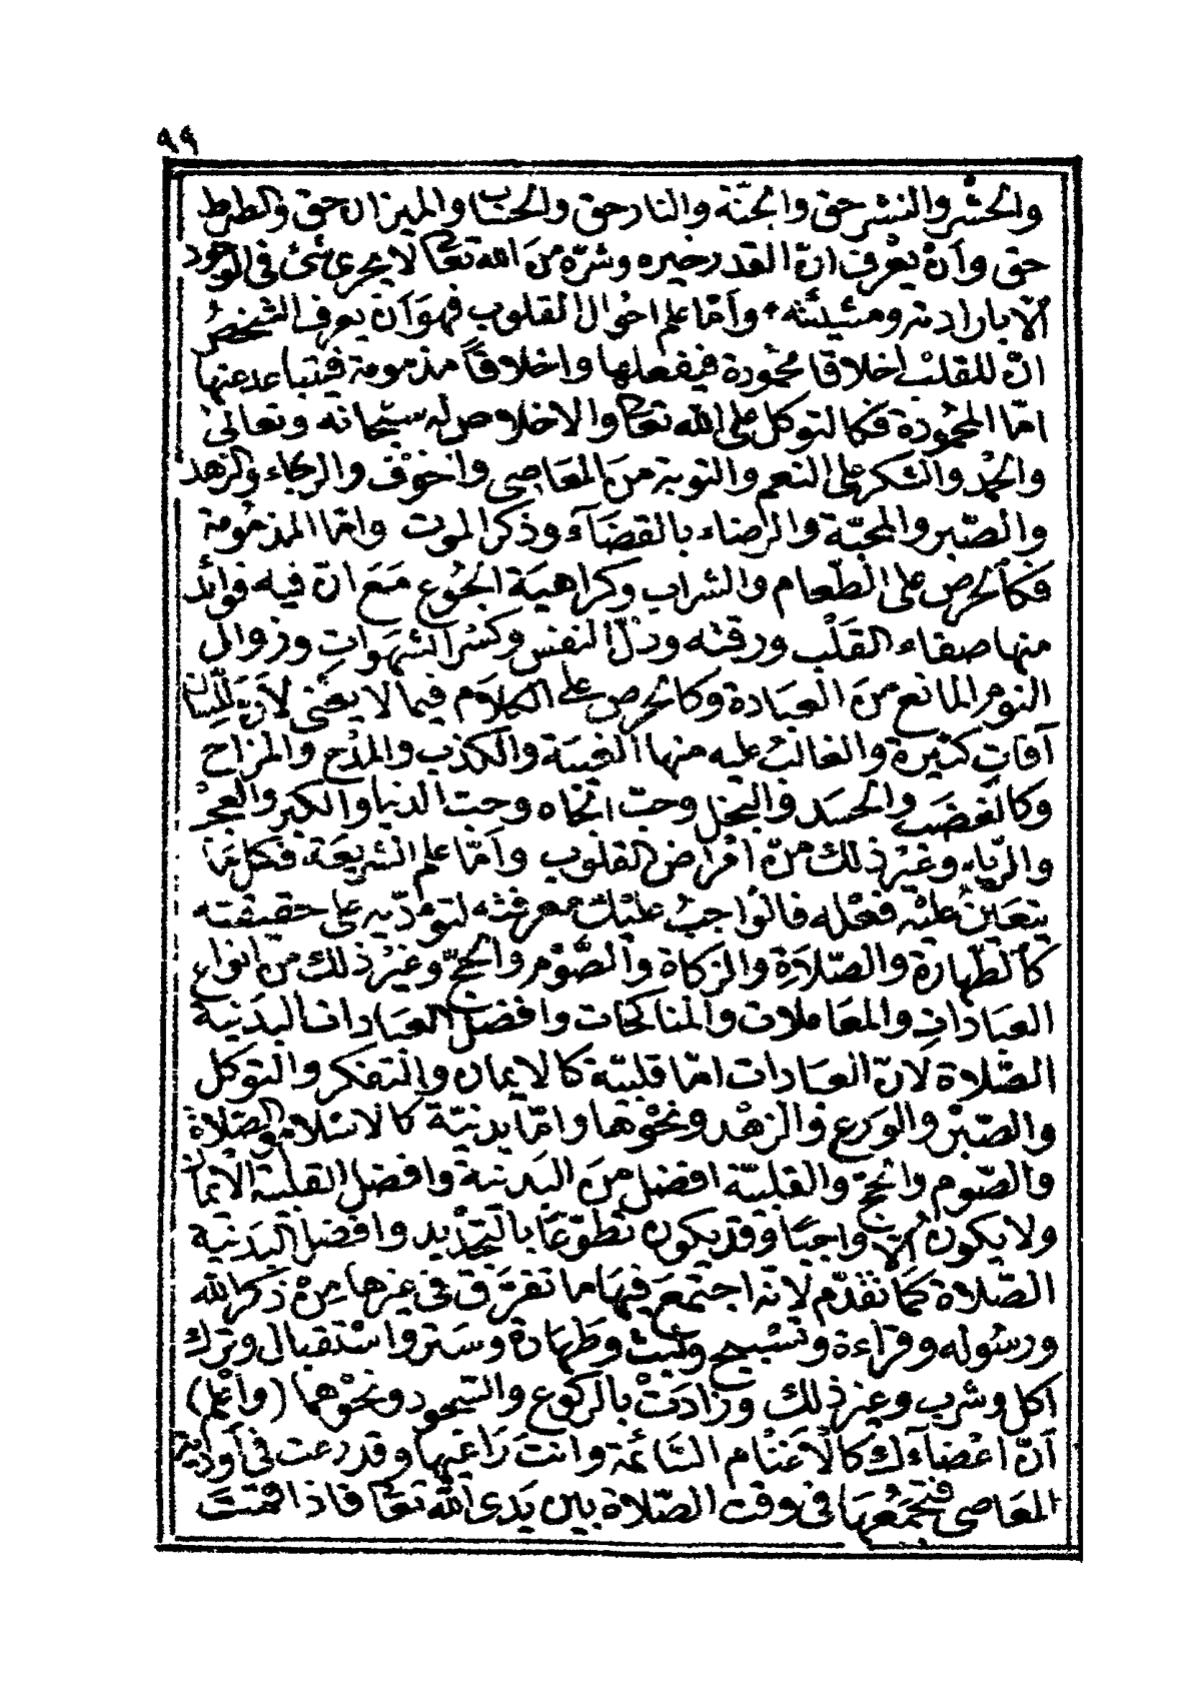 ٩٩
والحشر والنشر حق والجنّة والنار حق والحساب والميزان حق والصراط
حق وأنْ يعْرف انّ القدر خيره وشرّه منَ الله تعالى لا يجرى شئ فى الوجود
الاّ بارادته ومشيئته وأمّا علم احْوال القلوب فهوَ أن يعرف الشخصُ
انّ للقلب اخلاقا محمُودة فيفعلها واخلاقاً مذمومة فيتباعد عنها
امّا المحمُودة فكالتوكل على الله تعالى والاخلاص له سبْحانه وتعالىٰ
والحمْد والشكر على النعم والتوبة منَ المعَاصى والخوْف والرجاء والزهد
والصّبر والمحبّة والرضاء بالقضَآء وذكر الموت وامّا المذمُومة
فكالحرص على الطّعام والشراب وكراهيَة الجُوع مَعَ انّ فيه فوائد
منها صفاء القَلْب ورقته وذلّ النفس وكسْر الشهَوات وزوال
النوم المانع منَ العبَادة وكالحرص على الكلاَم فيما لا يعْنى لأنّ للّسان
آفاتٍ كثيرة والغالبُ عليه منها الغيبَة والكذب والمدْح والمزاح
وكالغضَب والحسَد والبخل وحبّ الجاه وحبّ الدنيا والكبر والعجْب
والريّاء وغيْر ذلك منْ امْراض القلوب وأمّا علم الشريعَة فكل مَا
يتعَينُ عليْه فعْله فالوَاجبُ عليْك معرفته لتؤدّيه على حقيقته
كالطّهارة والصّلاَةِ والزكاة والصُّوْم والحجّ وغيْر ذلك منْ انواع
العبادات والمعَاملات والمناكحات وافضل العبَادات البدَنية
الصّلاة لأنّ العبَادات امّا قلبيّة كالايمان والتفكر والتوكل
والصّبْر والورَع والزهْد ونحْوها وامّا بدنيّة كالاسْلام والصّلاة
والصّوم والحجّ والقلبيّة افضل منَ البَدنية وافضل القلبيّة الايمان
ولا يكونُ الاّ واجبًا وقد يكون تطوّعًا بالتجْديد وافضل البدَنية
الصّلاة كمَا تقدّم لانه اجتمعَ فيهَا ما تفرّق فى غيرها منْ ذكر الله
ورسُوله وقراءة وتسْبيح ولبْث وطهارة وستر واسْتقبال وترك
اكل وشرب وغير ذلك وزادَتْ بالركوع والسّجود ونحْوهما (واعْلم)
أنّ اعْضآءك كالاَغنام السَّائمة وانتَ رَاعيها وقد رعت فى أودية
المعَاصى فتجْمعُهَا فى وقت الصّلاة بين يَدى الله تعالى فاذا قمتَ